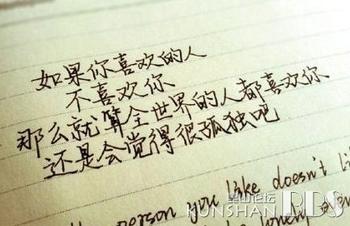 如果你喜欢的人
不喜欢你
那么就算全世界的人都喜欢你
还是会觉得很孤独吧
person you like doesn't li
昆山论坛
KUNSHAN BBS
lonely